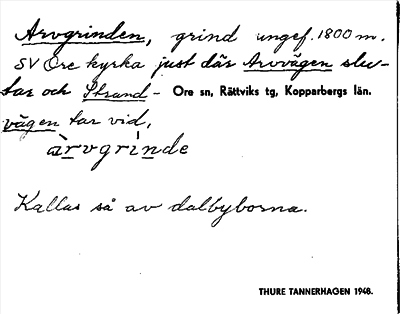 Arvgrinden, grind ungef. 1800 m.
SV Ore kyrka just där Arvvägen slu-
tar och Strand-
Ore sn, Rättviks tg, Kopparbergs län.
vägen tar vid,
àrvgrìnde
Kallas så av dalbyborna.
THURE TANNERHAGEN 1948.